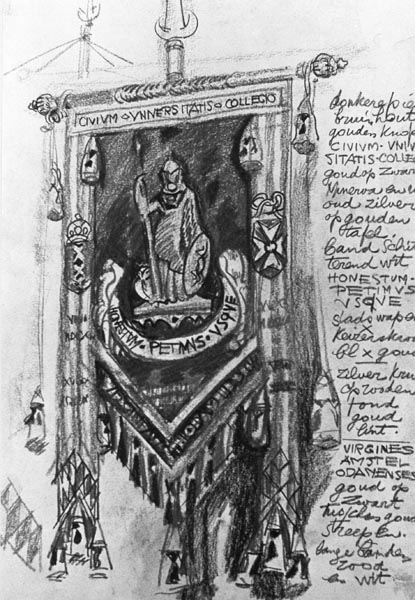 CIVIUM UNIVERSITATIS COLLEGIO
HONESTUM · PETIMUS · USQUE
donkergrijs
bruin hout
gouden knop
CIVIUM · UNIV
SITATIS · COLLEG
goud op zwart
Minerva en
oud zilver
op gouden
tafel.
band schit
terend wit
HONESTUM ·
PETIMUS
USQUE
stadswapen
Keizerskroon
goud
zilver kruis
op rooden
fond
goud
lint.
VIRGINES
AMSTEL
ODAMENSES
goud op
zwart
goud
streepen.
lange banden
rood
en wit